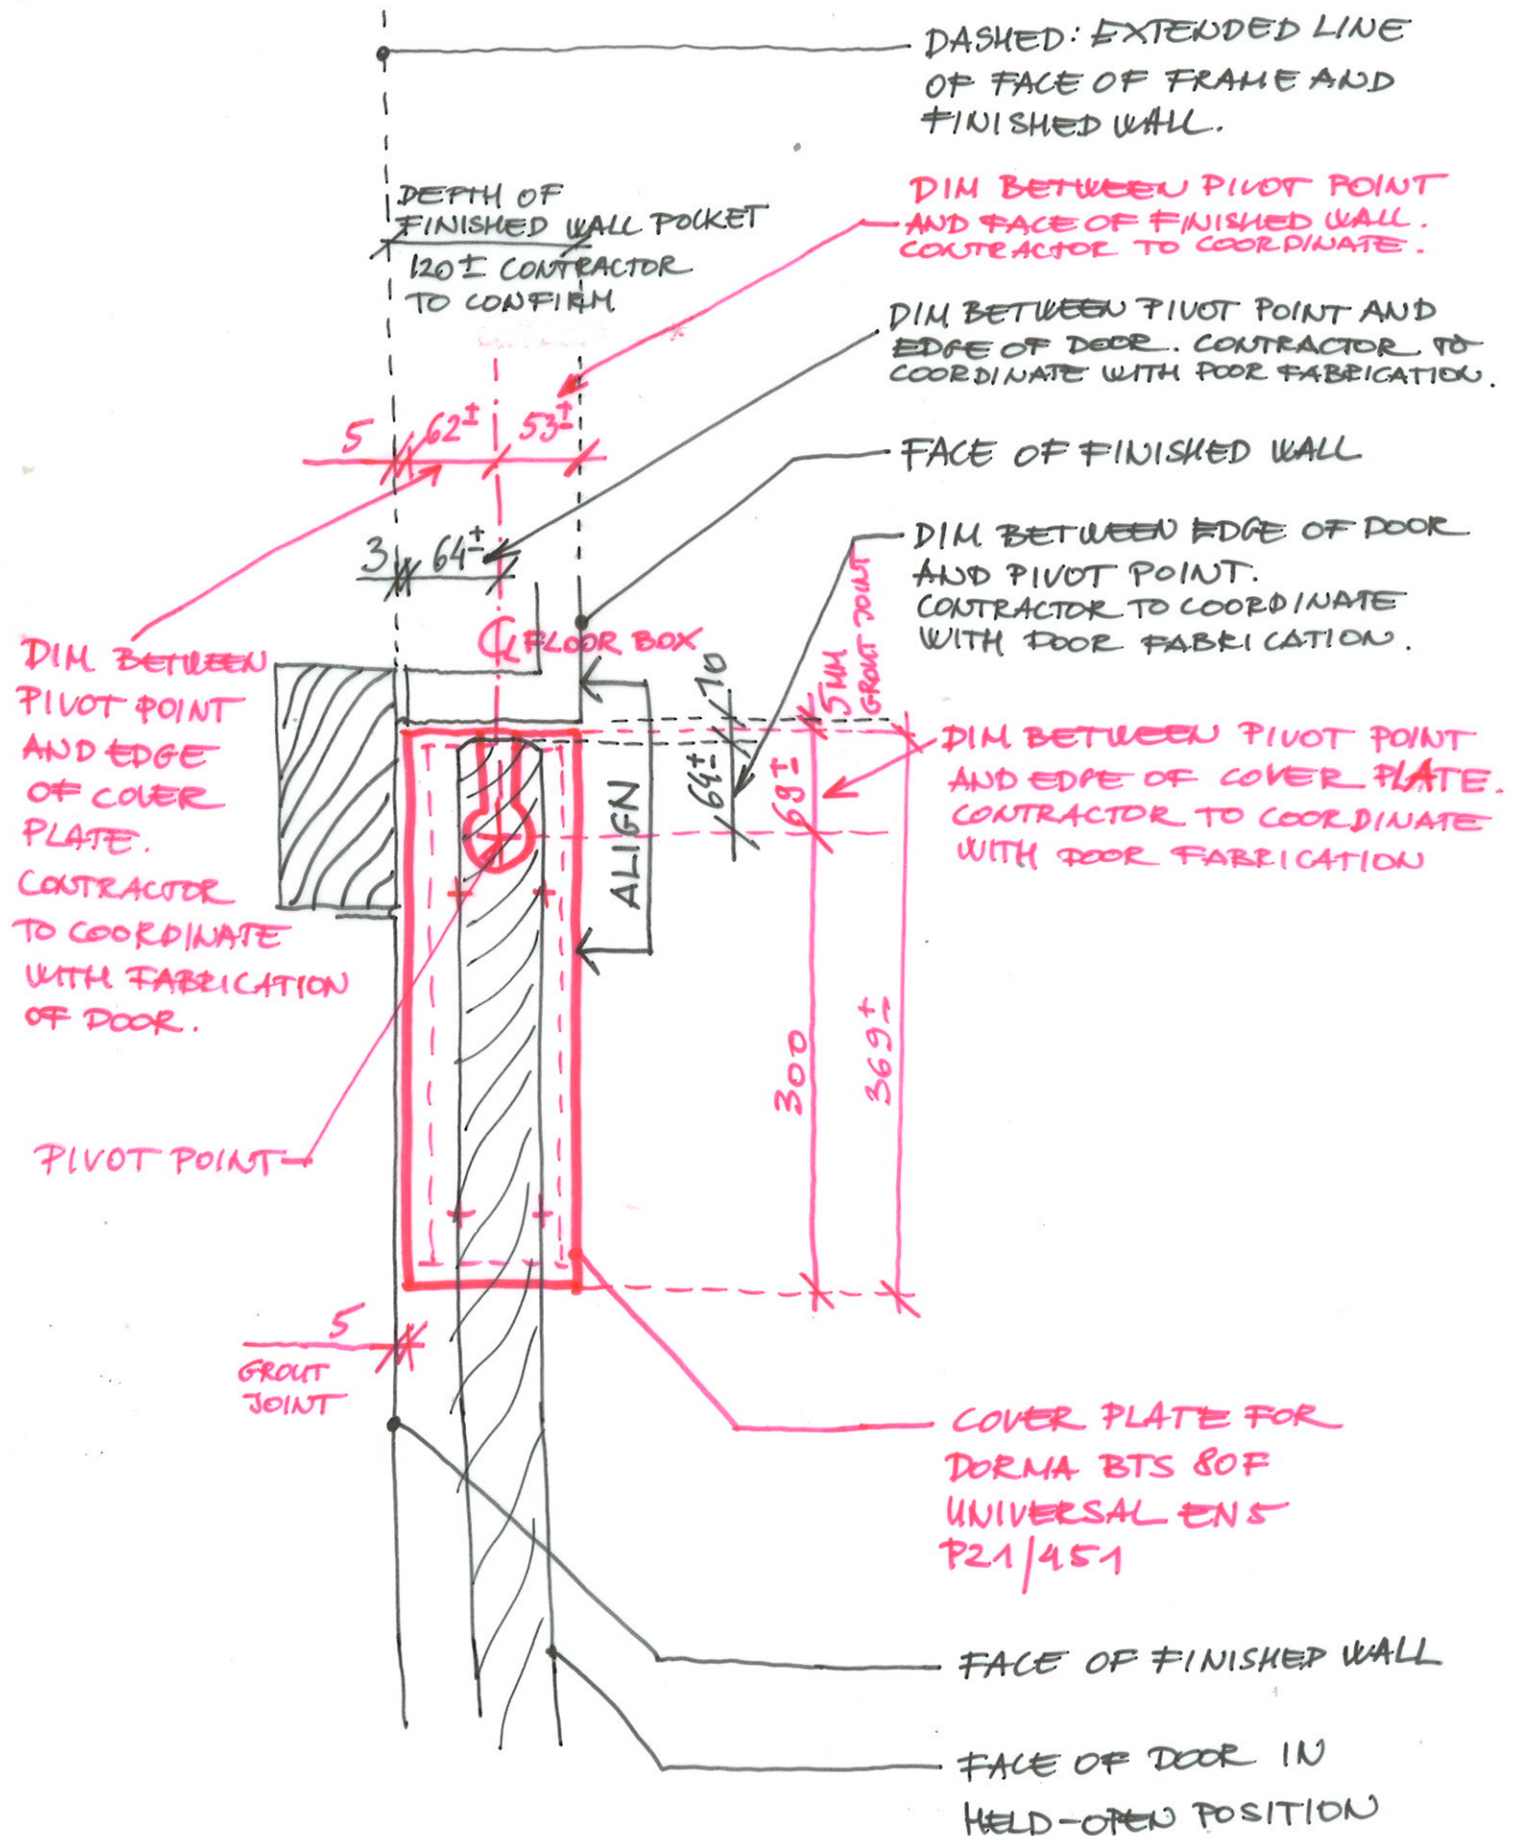 DASHED: EXTENDED LINE
OF FACE OF FRAME AND
FINISHED WALL.
DEPTH OF
FINISHED WALL POCKET
120± CONTRACTOR
TO CONFIRM
DIM BETWEEN PIVOT POINT
AND FACE OF FINISHED WALL.
CONTRACTOR TO COORDINATE.
DIM BETWEEN PIVOT POINT AND
EDGE OF DOOR. CONTRACTOR TO
COORDINATE WITH DOOR FABRICATION.
5 62± 53±
FACE OF FINISHED WALL
3 64±
DIM BETWEEN EDGE OF DOOR
AND PIVOT POINT.
CONTRACTOR TO COORDINATE
WITH DOOR FABRICATION.
℄ FLOOR BOX
10
64±
5MM
GROUT JOINT
69±
ALIGN
300
369±
DIM BETWEEN
PIVOT POINT
AND EDGE
OF COVER
PLATE.
CONTRACTOR
TO COORDINATE
WITH FABRICATION
OF DOOR.
DIM BETWEEN PIVOT POINT
AND EDGE OF COVER PLATE.
CONTRACTOR TO COORDINATE
WITH DOOR FABRICATION
PIVOT POINT
5
GROUT
JOINT
COVER PLATE FOR
DORMA BTS 80F
UNIVERSAL EN5
P21/451
FACE OF FINISHED WALL
FACE OF DOOR IN
HELD-OPEN POSITION